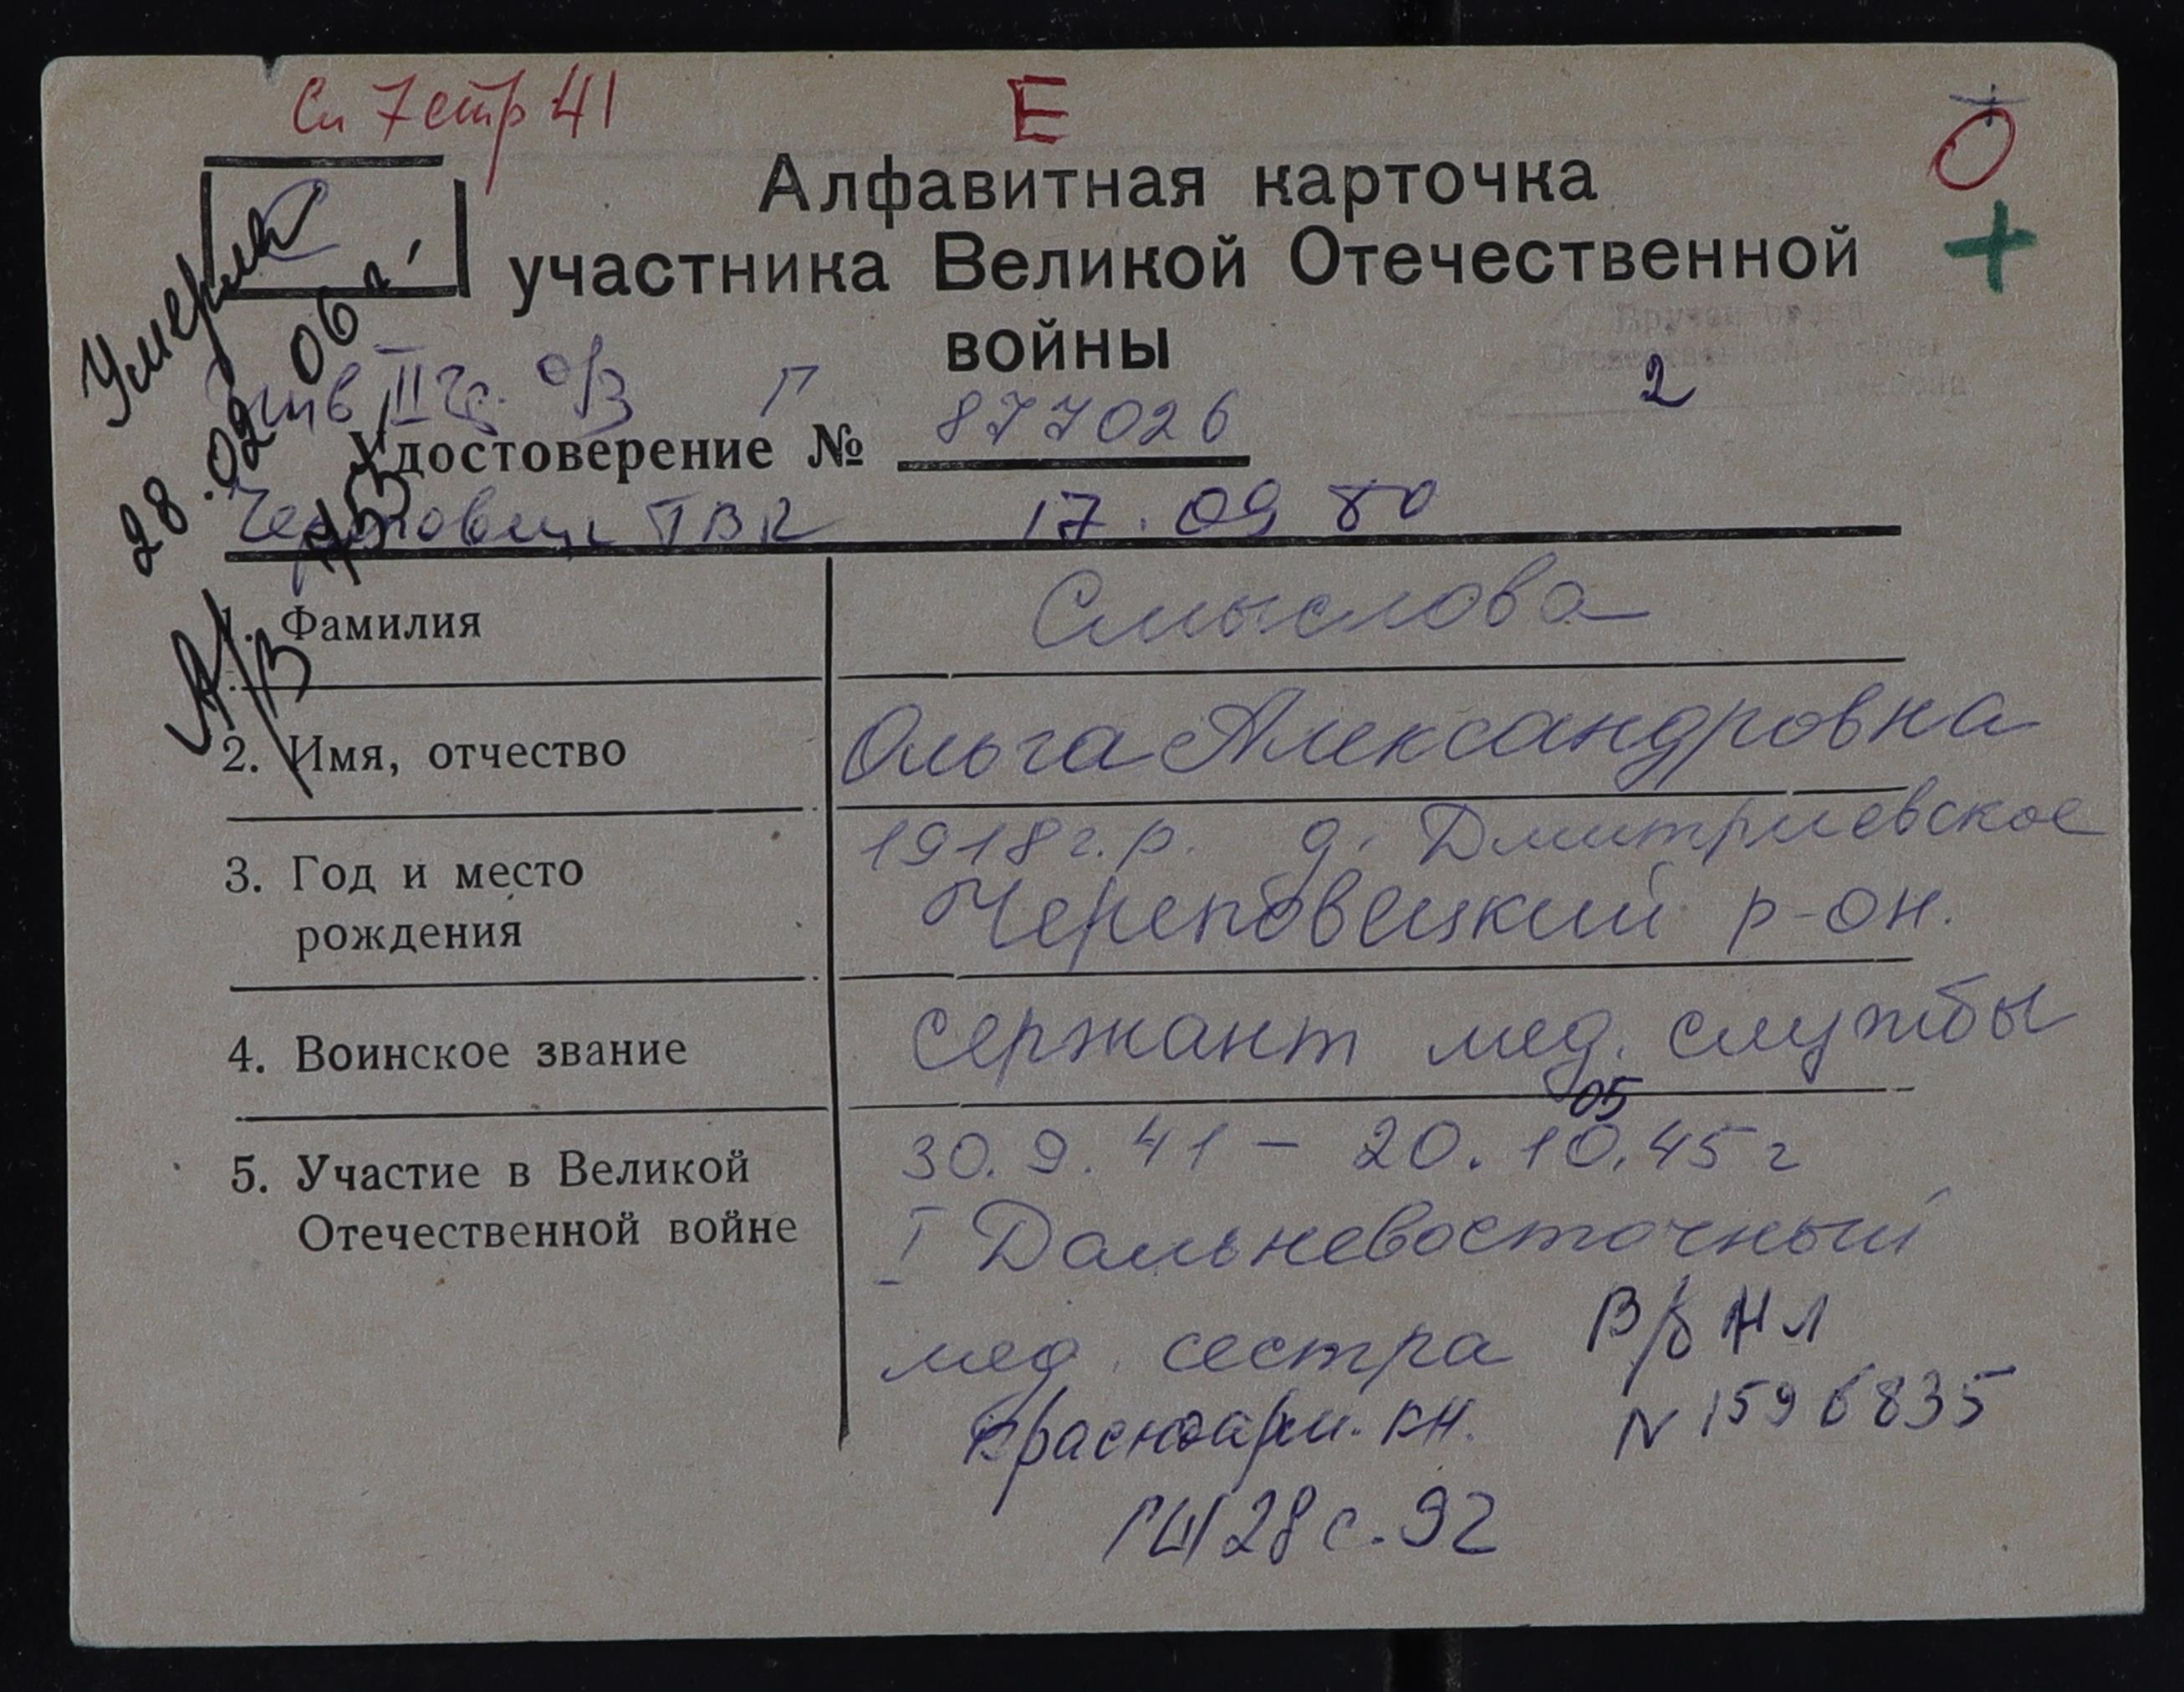 Сп 7 стр 41
Е
О
С
+
Алфавитная карточка
участника Великой Отечественной
войны
Умерла
28.02.06 г.
А/З
инв II гр. о/з Г
2
Удостоверение № 877026
Череповец ГВК 17.09 80
1. Фамилия Смыслова
2. Имя, отчество Ольга Александровна
3. Год и место
рождения
1918 г.р. д. Дмитриевское
Череповецкий р-он.
4. Воинское звание сержант мед. службы
05
5. Участие в Великой
Отечественной войне
30.9.41 – 20.10.45 г
I Дальневосточный
мед. сестра
В/б НЛ
Красноарм. кн.
N 1596835
28 с. 92